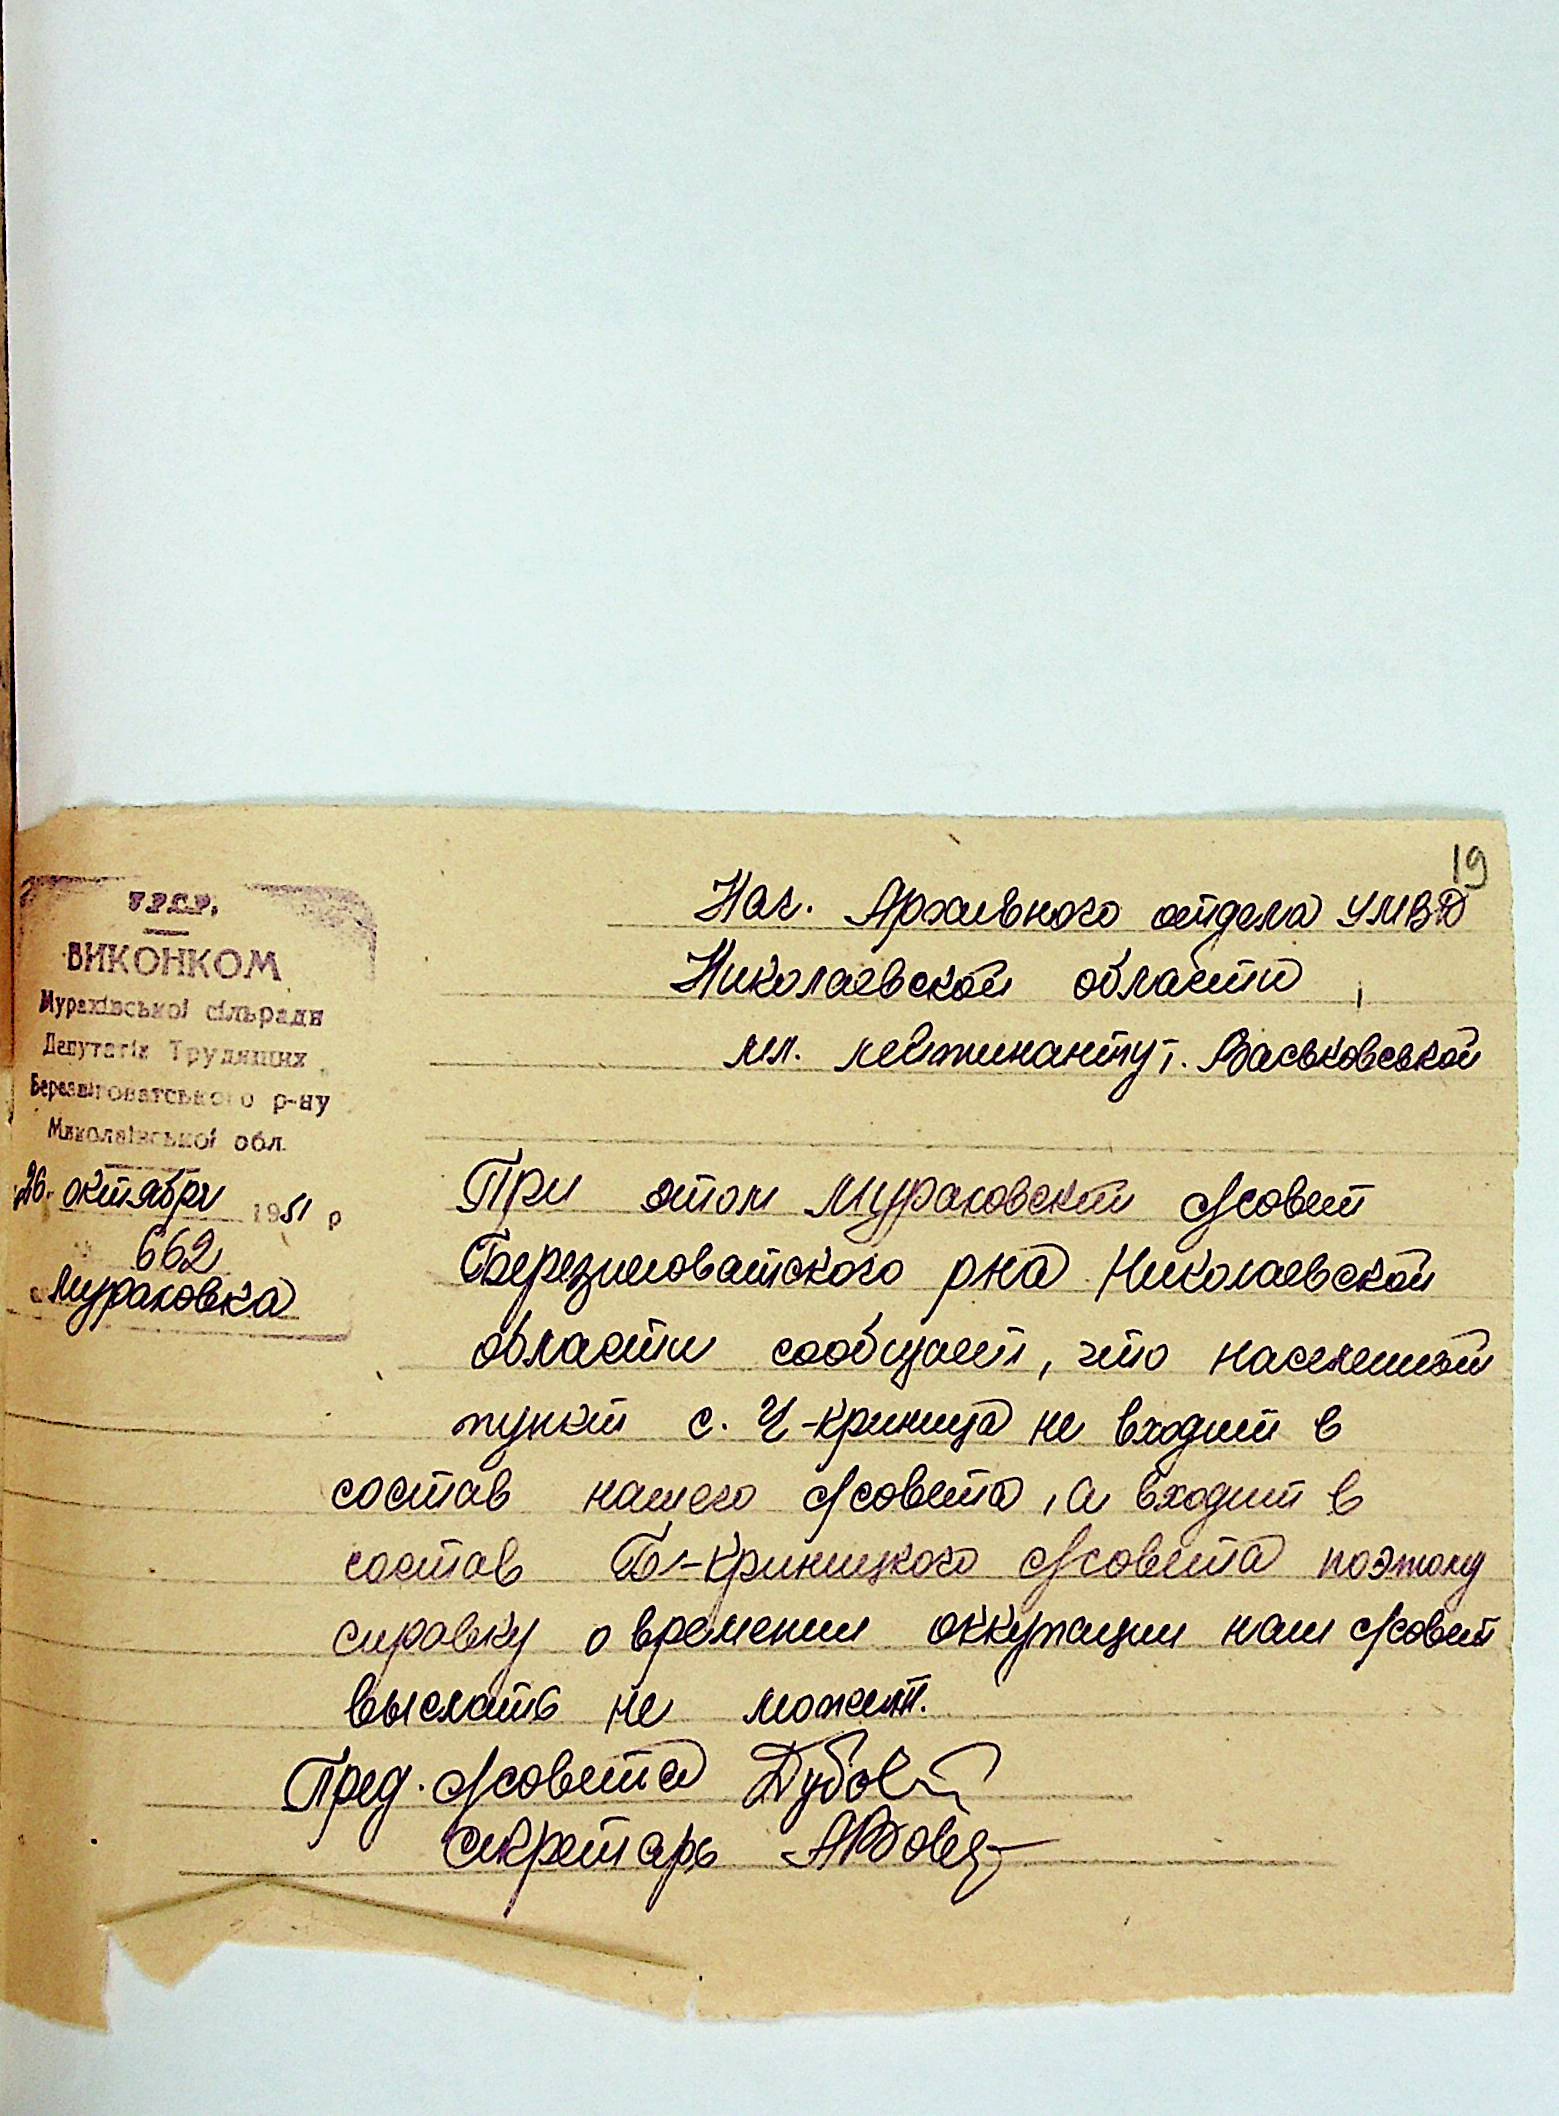 19
У.Р.С.Р.
ВИКОНКОМ
Мурахівської сільради
Депутатів Трудящих
Березнеговатського р-ну
Миколаївської обл.
26 октября 1951 р
662
Мураховка
Нач. Архивного отдела УМВД
Николаевской области,
мл. лейтинанту т. Васьковськой
При этом Мураховский с/совет
Березниговатского рна Николаевской
области сообщает, что населенный
пункт с. Ч-криница не входит в
состав нашего с/совета, а входит в
состав Б-Криницкого с/совета поэтому
справку о времении оккупации наш с/совет
выслать не может.
Пред. с/совета
секретарь